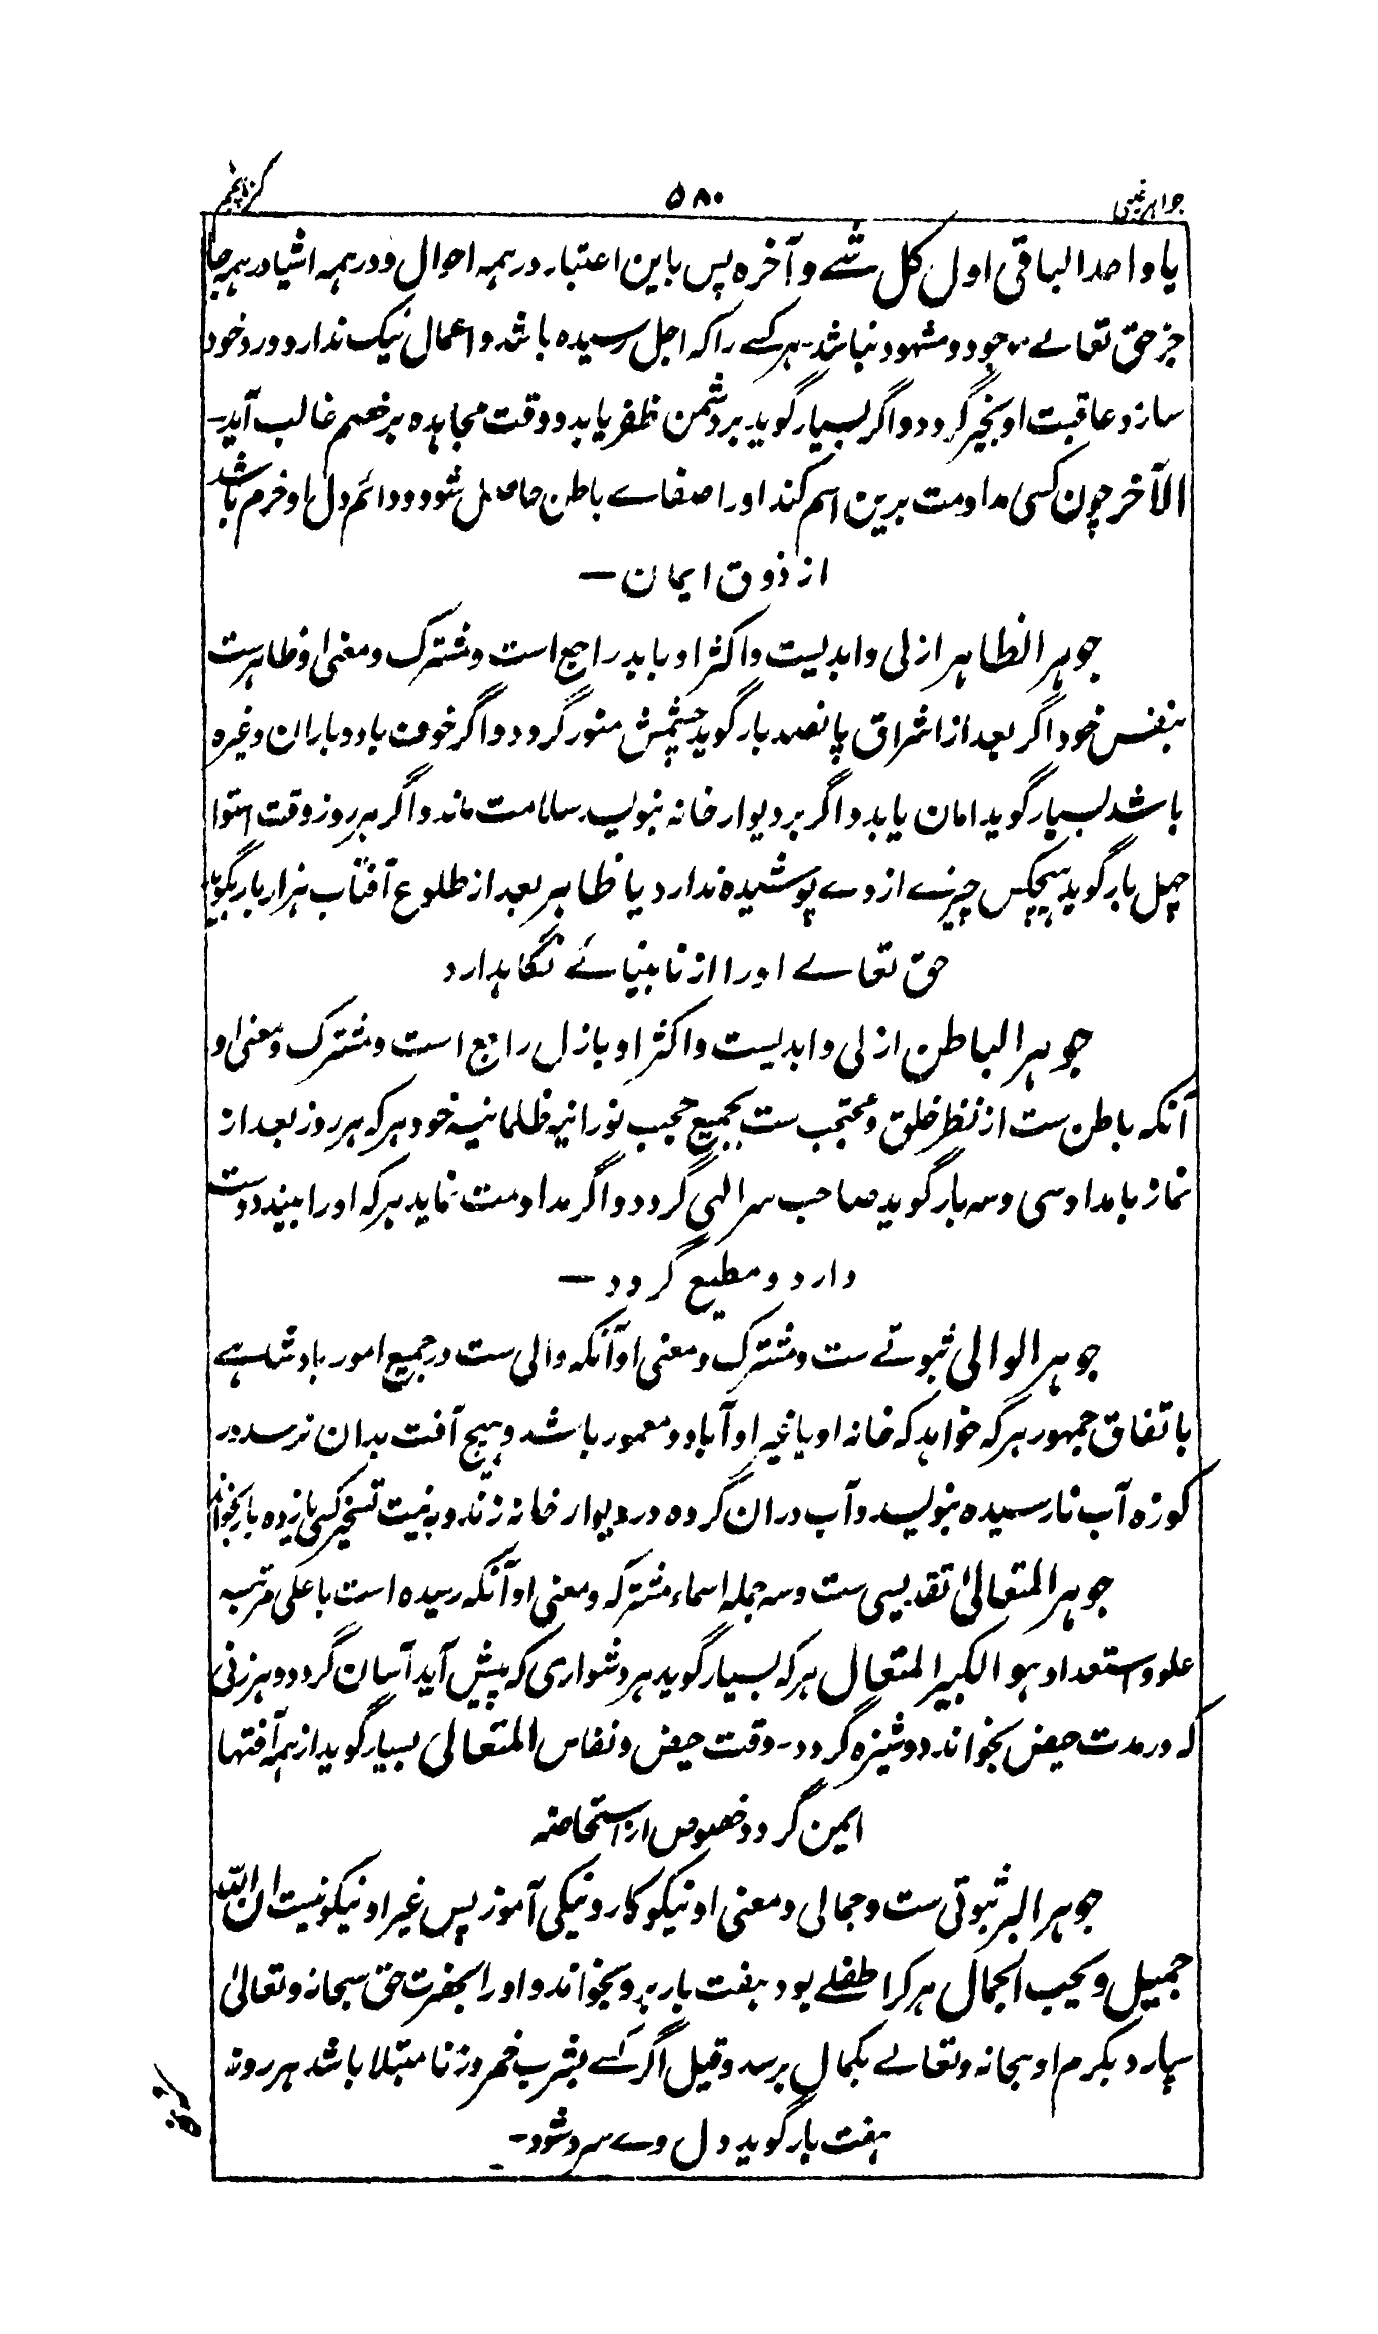 جواہر غیبی
۵۸۰
کنز پنجم
یا واحد الباقی اول کل شے و آخرہ پس باین اعتبار در ہمہ احوال و در ہمہ اشیا در ہمہ جا
جز حق تعالے موجود و مشہود نباشد۔ ہر کسے را کہ اجل رسیدہ باشد و اعمال نیک ندارد ورد خود
سازد عاقبت او بخیر گردد و اگر بسیار گوید بر دشمن ظفر یابد و وقت مجاہدہ بر خصم غالب آید۔
الآخر چون کسی مداومت برین اسم کند او را صفاے باطن حاصل شود و دائم دل او خرم باشد
از ذوق ایمان —
جوہر الظاہر ازلی و ابدیست و اکثر او بابد راجع است و مشترک و معنی او ظاہرست
بنفس خود اگر بعد از اشراق پانصد بار گوید چشمش منور گردد و اگر خوف باد و باران وغیرہ
باشد بسیار گوید امان یابد و اگر بر دیوار خانہ بنویسد سلامت ماند و اگر ہر روز وقت استوا
چہل بار گوید ہیچکس چیزے از وے پوشیدہ ندارد یا ظاہر بعد از طلوع آفتاب ہزار بار بگوید
حق تعالے او را از نابینائے نگاہدارد
جوہر الباطن ازلی و ابدیست و اکثر او بازل راجع است و مشترک و معنی او
آنکہ باطن ست از نظر خلق و محتجب ست بجمیع حجب نورانیہ ظلمانیہ خود ہر کہ ہر روز بعد از
نماز بامداد سی و سہ بار گوید صاحب سر الہی گردد و اگر مداومت نماید ہر کہ او را بیند دوست
دارد و مطیع گردد —
جوہر الوالی ثبوتے ست و مشترک و معنی او آنکہ والی ست در جمیع امور بادشاہے
باتفاق جمہور ہر کہ خواہد کہ خانہ او یا غیر او آباد و معمور باشد و ہیچ آفت بدان نرسد در
کوزہ آب نارسیدہ بنویسد و آب دران کردہ در دیوار خانہ زند و بہ نیت تسخیر کسی یازدہ بار بخواند
جوہر المتعالیٰ تقدیسی ست و سہ جملہ اسماء مشترکہ و معنی او آنکہ رسیدہ است باعلی مرتبہ
علو و استعداد ہو الکبیر المتعال ہر کہ بسیار گوید ہر دشواری کہ پیش آید آسان گردد و ہر زنی
کہ در مدت حیض بخواند دوشیزہ گردد۔ وقت حیض و نفاس المتعالی بسیار گوید از ہمہ آفتہا
ایمن گردد خصوص از استحاضہ
جوہر البر ثبوتی ست و جمالی و معنی او نیکو کار و نیکی آموز پس غیر او نیکو نیست ان اللہ
جمیل و یحب الجمال ہر کرا طفلے بود ہفت بار برو بخواند و او را بحضرت حق سبحانہ و تعالیٰ
سپارد بکرم او سبحانہ و تعالے بکمال برسد و قیل اگر کسے بشرب خمر و زنا مبتلا باشد ہر روز
ہفت بار گوید دل وے سرد شود۔